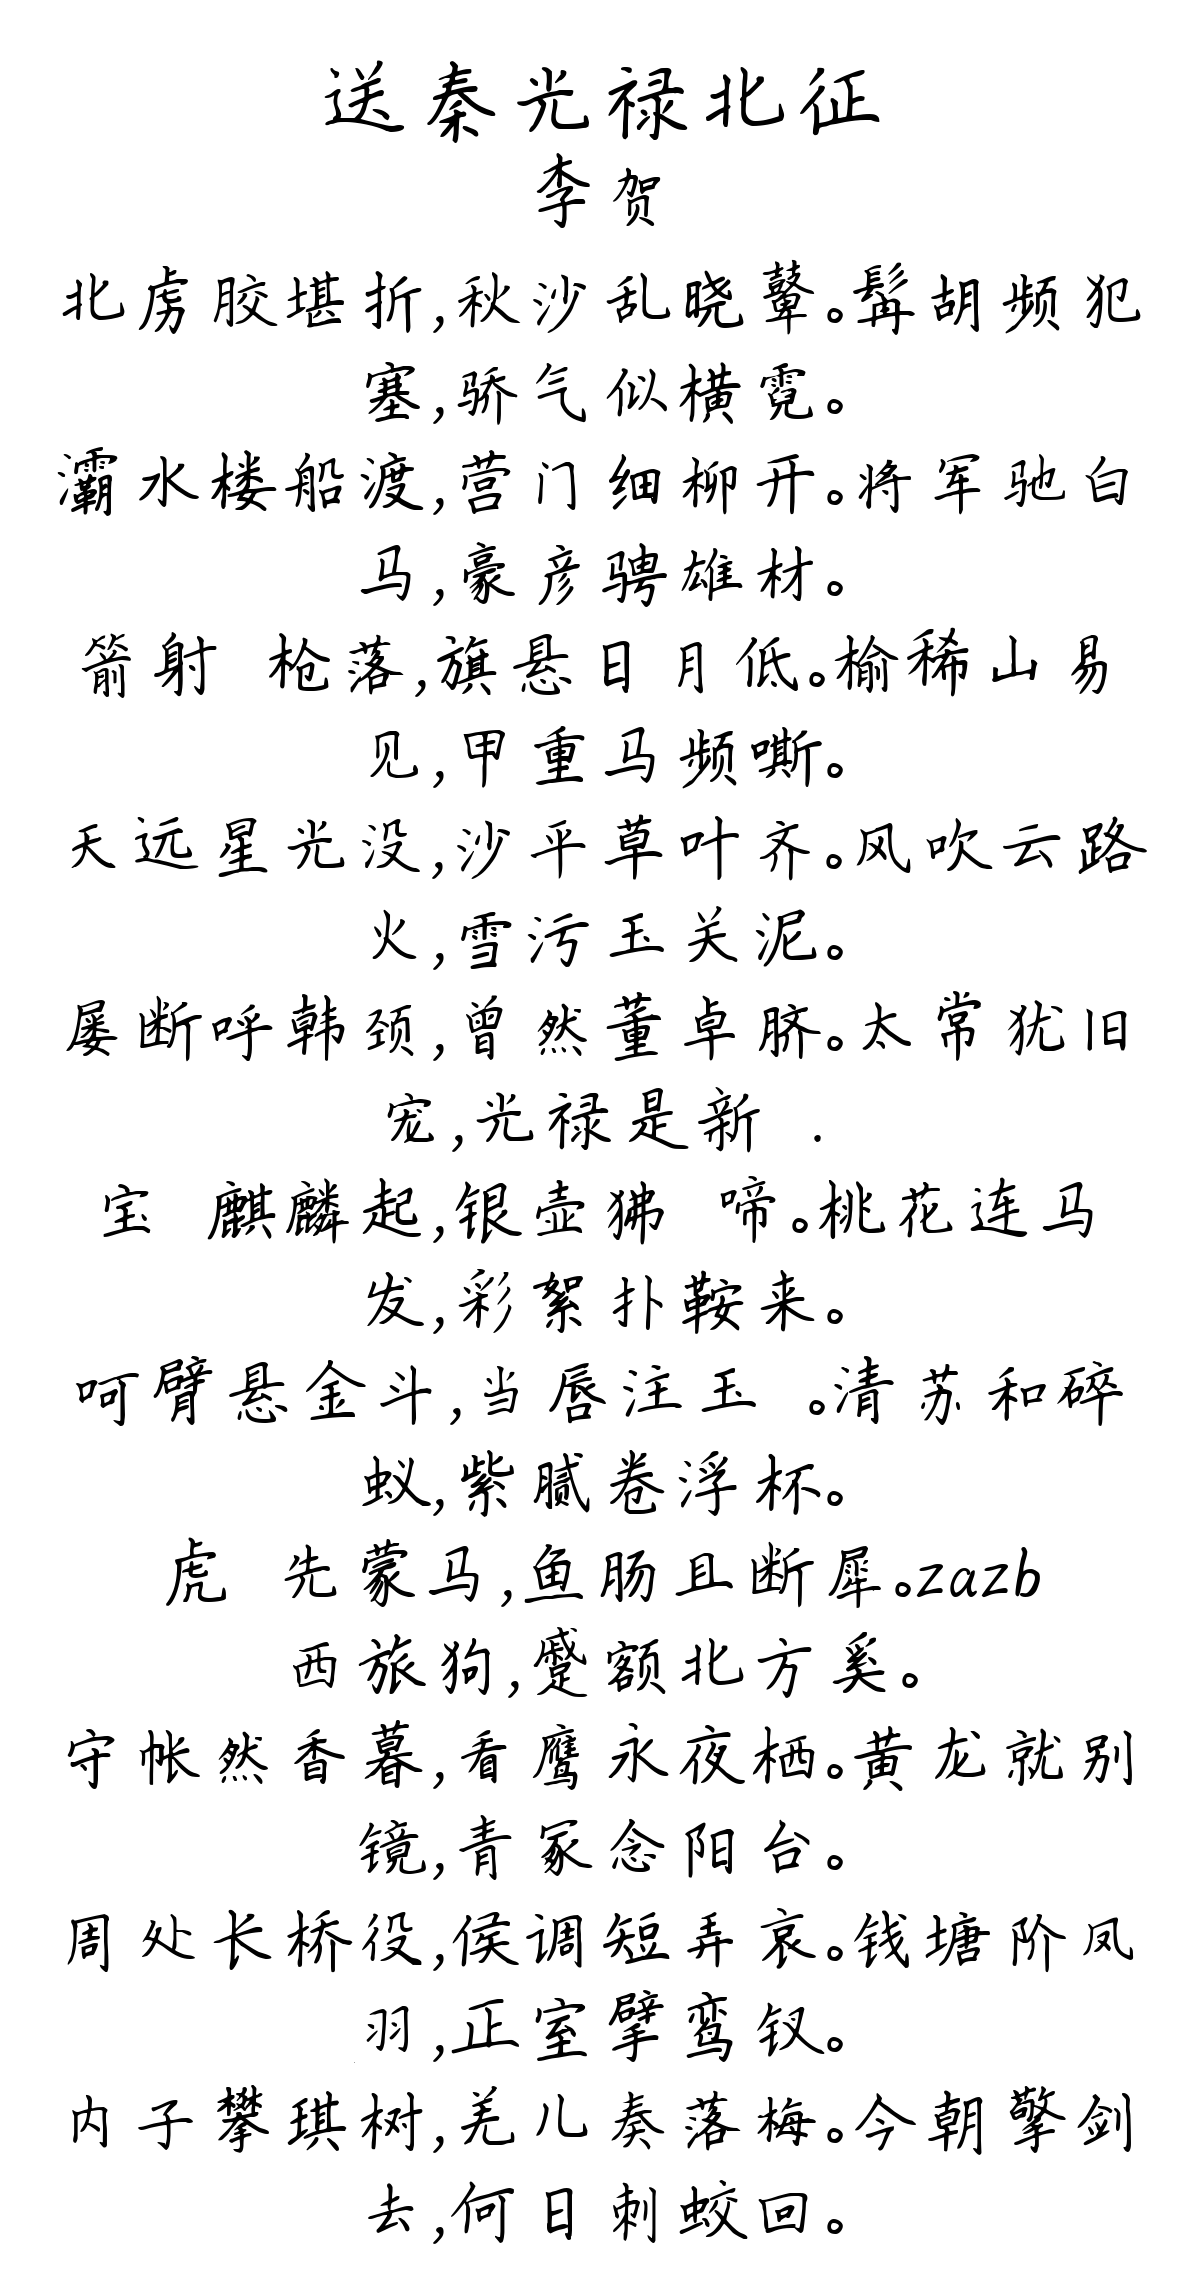 送秦光禄北征
李贺
北虏胶堪折,秋沙乱晓鼙。髯胡频犯
塞,骄气似横霓。
灞水楼船渡,营门细柳开。将军驰白
马,豪彦骋雄材。
箭射 枪落,旗悬日月低。榆稀山易
见,甲重马频嘶。
天远星光没,沙平草叶齐。风吹云路
火,雪污玉关泥。
屡断呼韩颈,曾然董卓脐。太常犹旧
宠,光禄是新 .
宝 麒麟起,银壶狒 啼。桃花连马
发,彩絮扑鞍来。
呵臂悬金斗,当唇注玉 。清苏和碎
蚁,紫腻卷浮杯。
虎 先蒙马,鱼肠且断犀。zazb
西旅狗,蹙额北方奚。
守帐然香暮,看鹰永夜栖。黄龙就别
镜,青冢念阳台。
周处长桥役,侯调短弄哀。钱塘阶凤
羽,正室擘鸾钗。
内子攀琪树,羌儿奏落梅。今朝擎剑
去,何日刺蛟回。